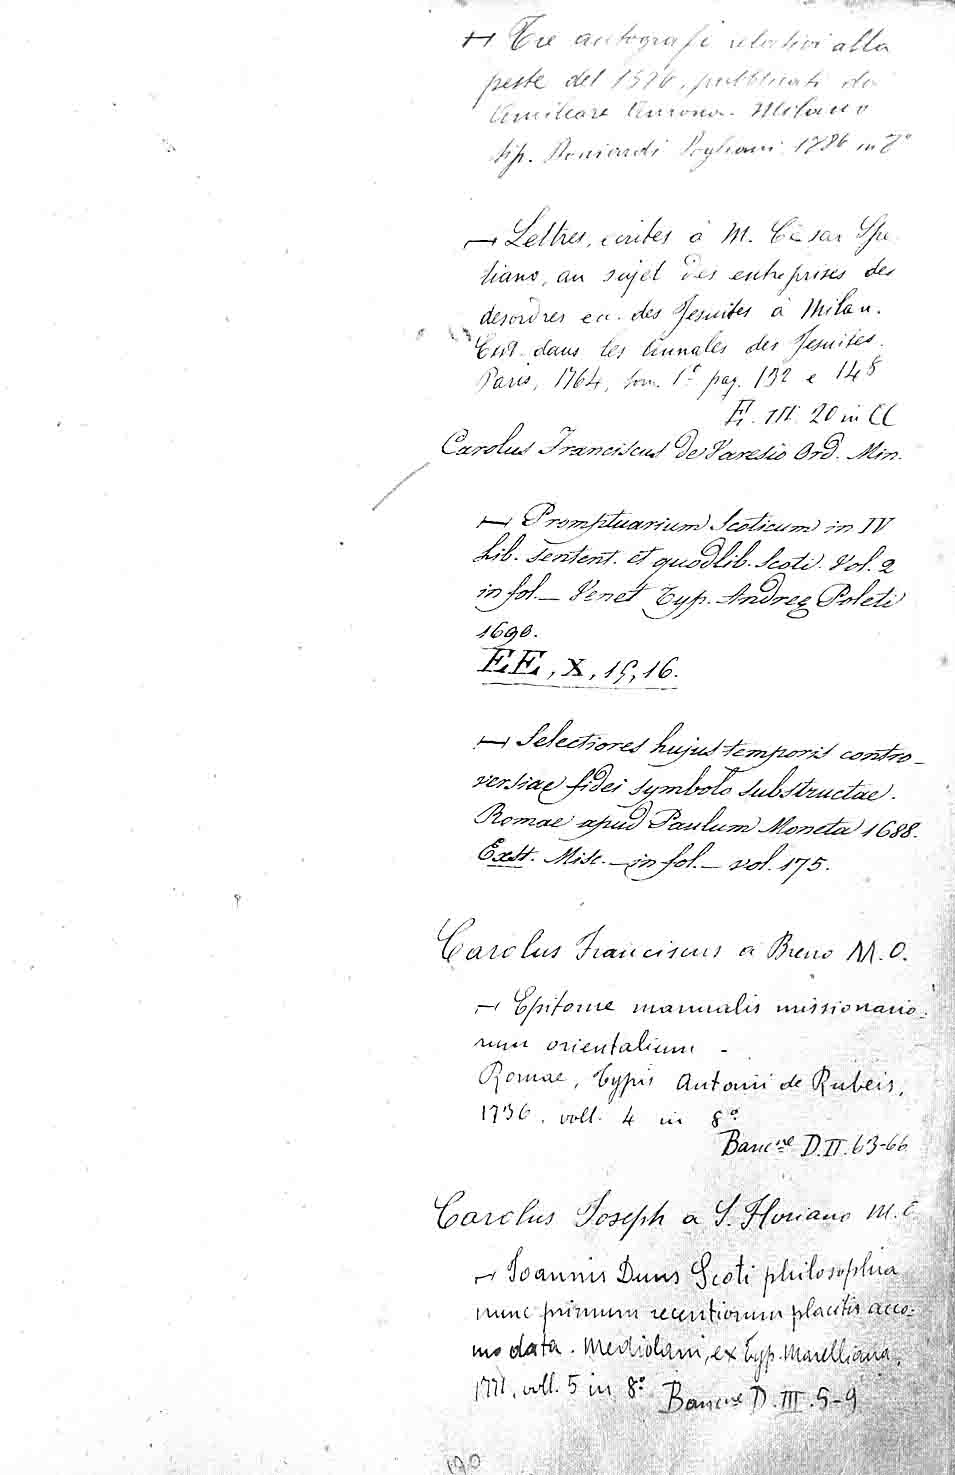 ⊢ Tre autografi relativi alla
peste del 1576, pubblicati da
Amilcare Aurona. Milano
tip. Boniardi Pogliani. 1886 in 8º
⊢ Lettres, écrites à M. César Spe
tiano, au sujet des entreprises des
desordres ec. des Jesuites à Milan.
Est. dans les Annales des Jesuites.
Paris, 1764, tom. 1º pag. 132 e 148
E. III. 20 in CC
Carolus Franciscus de Varesio Ord. Min.
⊢ Promptuarium Scoticum in IV
Lib. Sentent. et quodlib. Scoti. Vol. 2
in fol. — Venet Typ. Andreę Poleti
1690.
EE, X, 15, 16.
⊢ Selectiores hujus temporis contro-
versiae fidei symbolo substructae.
Romae apud Paulum Moneta 1688.
Exst. Misc. — in fol. — vol. 175.
Carolus Franciscus a Breno M.O.
⊢ Epitome manualis missionario=
rum orientalium -
Romae, typis Antonii de Rubeis,
1736. voll. 4 in 8º.
Bancne D.II.63-66
Carolus Joseph a S. Floriano M.O.
⊢ Joannis Duns Scoti philosophia
nunc primum recentiorum placitis acco=
modata. Mediolani, ex typ. Marelliana,
1771, voll. 5 in 8º.
Bancne D.III.5-9
190